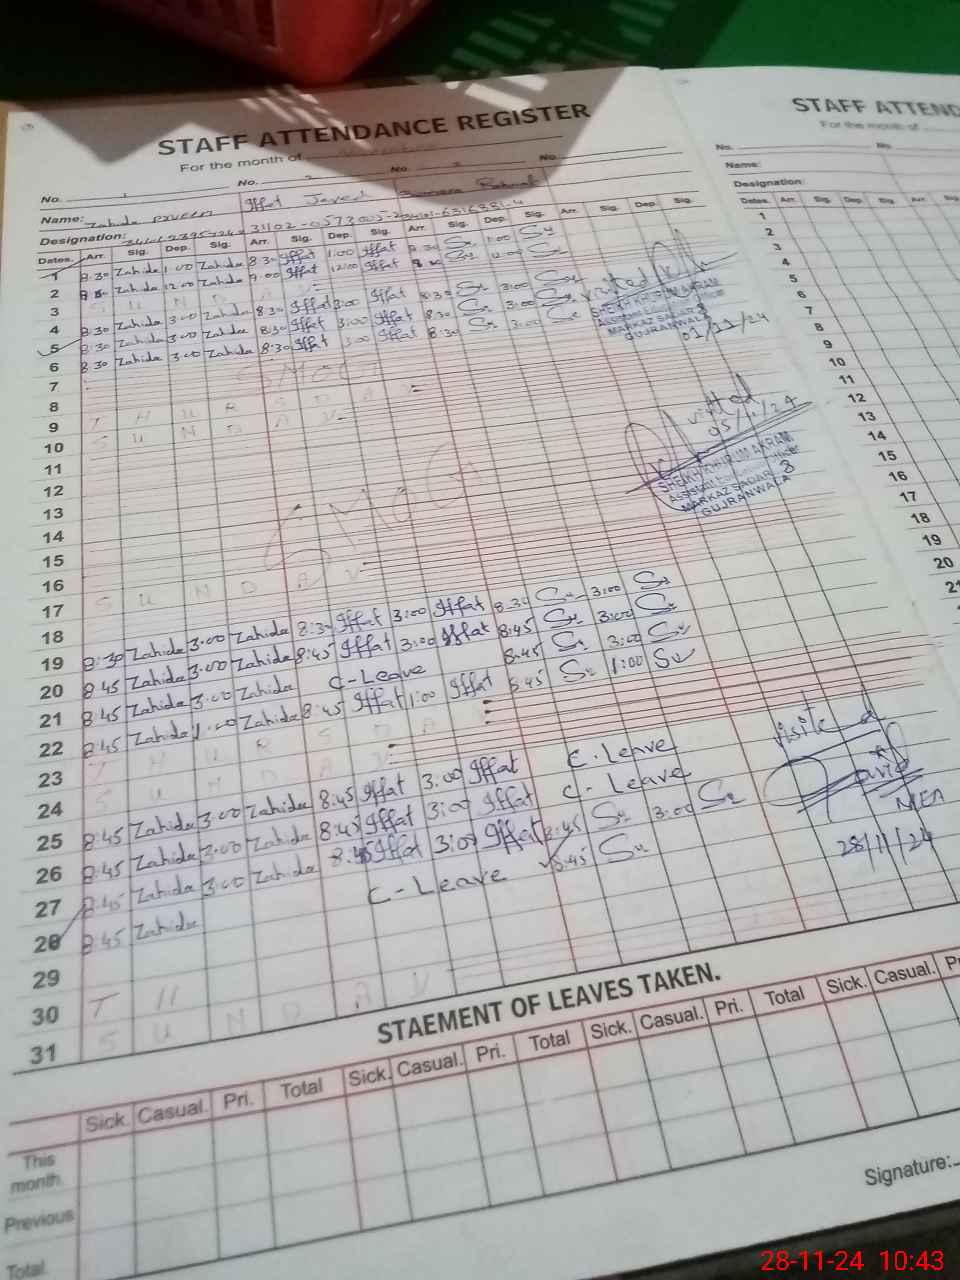 STAFF ATTENDANCE REGISTER
For the month of
No. 1 No. 2 No. No.
Name: Zahida Parveen Iffat Javed Rehmat
Designation:
Dates. Arr. Sig. Dep. Sig. Arr. Sig. Dep. Sig. Arr. Sig. Dep. Sig. Arr. Sig. Dep. Sig.
1 8:30 Zahida 1:00 Zahida 8:30 Iffat 1:00 Iffat 8:30 1:00
2 Zahida 12:00 Zahida Iffat 12:00 Iffat 12:00
3 S U N D A Y
4 8:30 Zahida 3:00 Zahida 8:30 Iffat 3:00 Iffat 8:30 3:00
5 8:30 Zahida 3:00 Zahida 8:30 Iffat 3:00 Iffat 8:30 3:00
6 8:30 Zahida 3:00 Zahida 8:30 Iffat 3:00 Iffat 8:30 3:00
7 SMOG
8
9 T H U R S D A Y
10 S U N D A Y
11
12
13
14 SMOG
15
16
17 S U N D A Y
18
19 8:30 Zahida 3:00 Zahida 8:30 Iffat 3:00 Iffat 8:30 3:00
20 8:45 Zahida 3:00 Zahida 8:45 Iffat 3:00 Iffat 8:45 3:00
21 8:45 Zahida 3:00 Zahida C-Leave 8:45 3:00
22 8:45 Zahida 1:00 Zahida 8:45 Iffat 1:00 Iffat 8:45 1:00
23 T H U R S D A Y
24 S U N D A Y
25 8:45 Zahida 3:00 Zahida 8:45 Iffat 3:00 Iffat C-Leave
26 8:45 Zahida 3:00 Zahida 8:45 Iffat 3:00 Iffat C-Leave
27 8:45 Zahida 3:00 Zahida 8:45 Iffat 3:00 Iffat 8:45 3:00
28 8:45 Zahida C-Leave 8:45
29
30 T H
31 S U N D A Y
visited
SHEIKH KHURUM AKRAM
Assistant Education Officer
MARKAZ SADAR 3
GUJRANWALA
01/11/24
visited
05/11/24
SHEIKH KHURUM AKRAM
Assistant Education Officer
MARKAZ SADAR 3
GUJRANWALA
visited
MEA
28/11/24
STAEMENT OF LEAVES TAKEN.
Sick. Casual. Pri. Total Sick. Casual. Pri. Total Sick. Casual. Pri. Total Sick. Casual.
This month.
Previous
Total.
Signature:
STAFF ATTEND
For the month of
No. No.
Name:
Designation:
Dates. Arr. Sig. Dep. Sig. Arr.
1
2
3
4
5
6
7
8
9
10
11
12
13
14
15
16
17
18
19
20
28-11-24 10:43